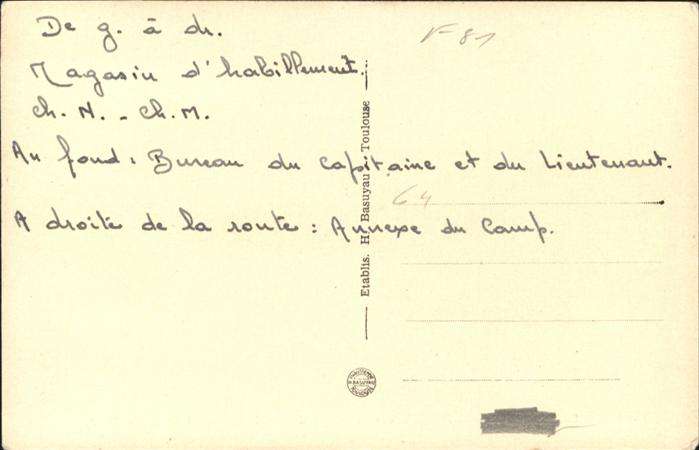 De g. à dr.
Magasin d'habillement.
Ch. N. - Ch. M.
Au fond : Bureau du Capitaine et du Lieutenant.
A droite de la route : Annexe du Camp.
F 81
64
Etablis. H. Basuyau - Toulouse